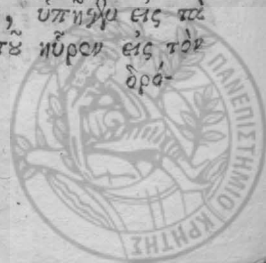 , ὑπῆγα εἰς τὰ
τῦ ηὗρον εἰς τὸν
δρό-
ΠΑΝΕΠΙΣΤΗΜΙΟ ΚΡΗΤΗΣ